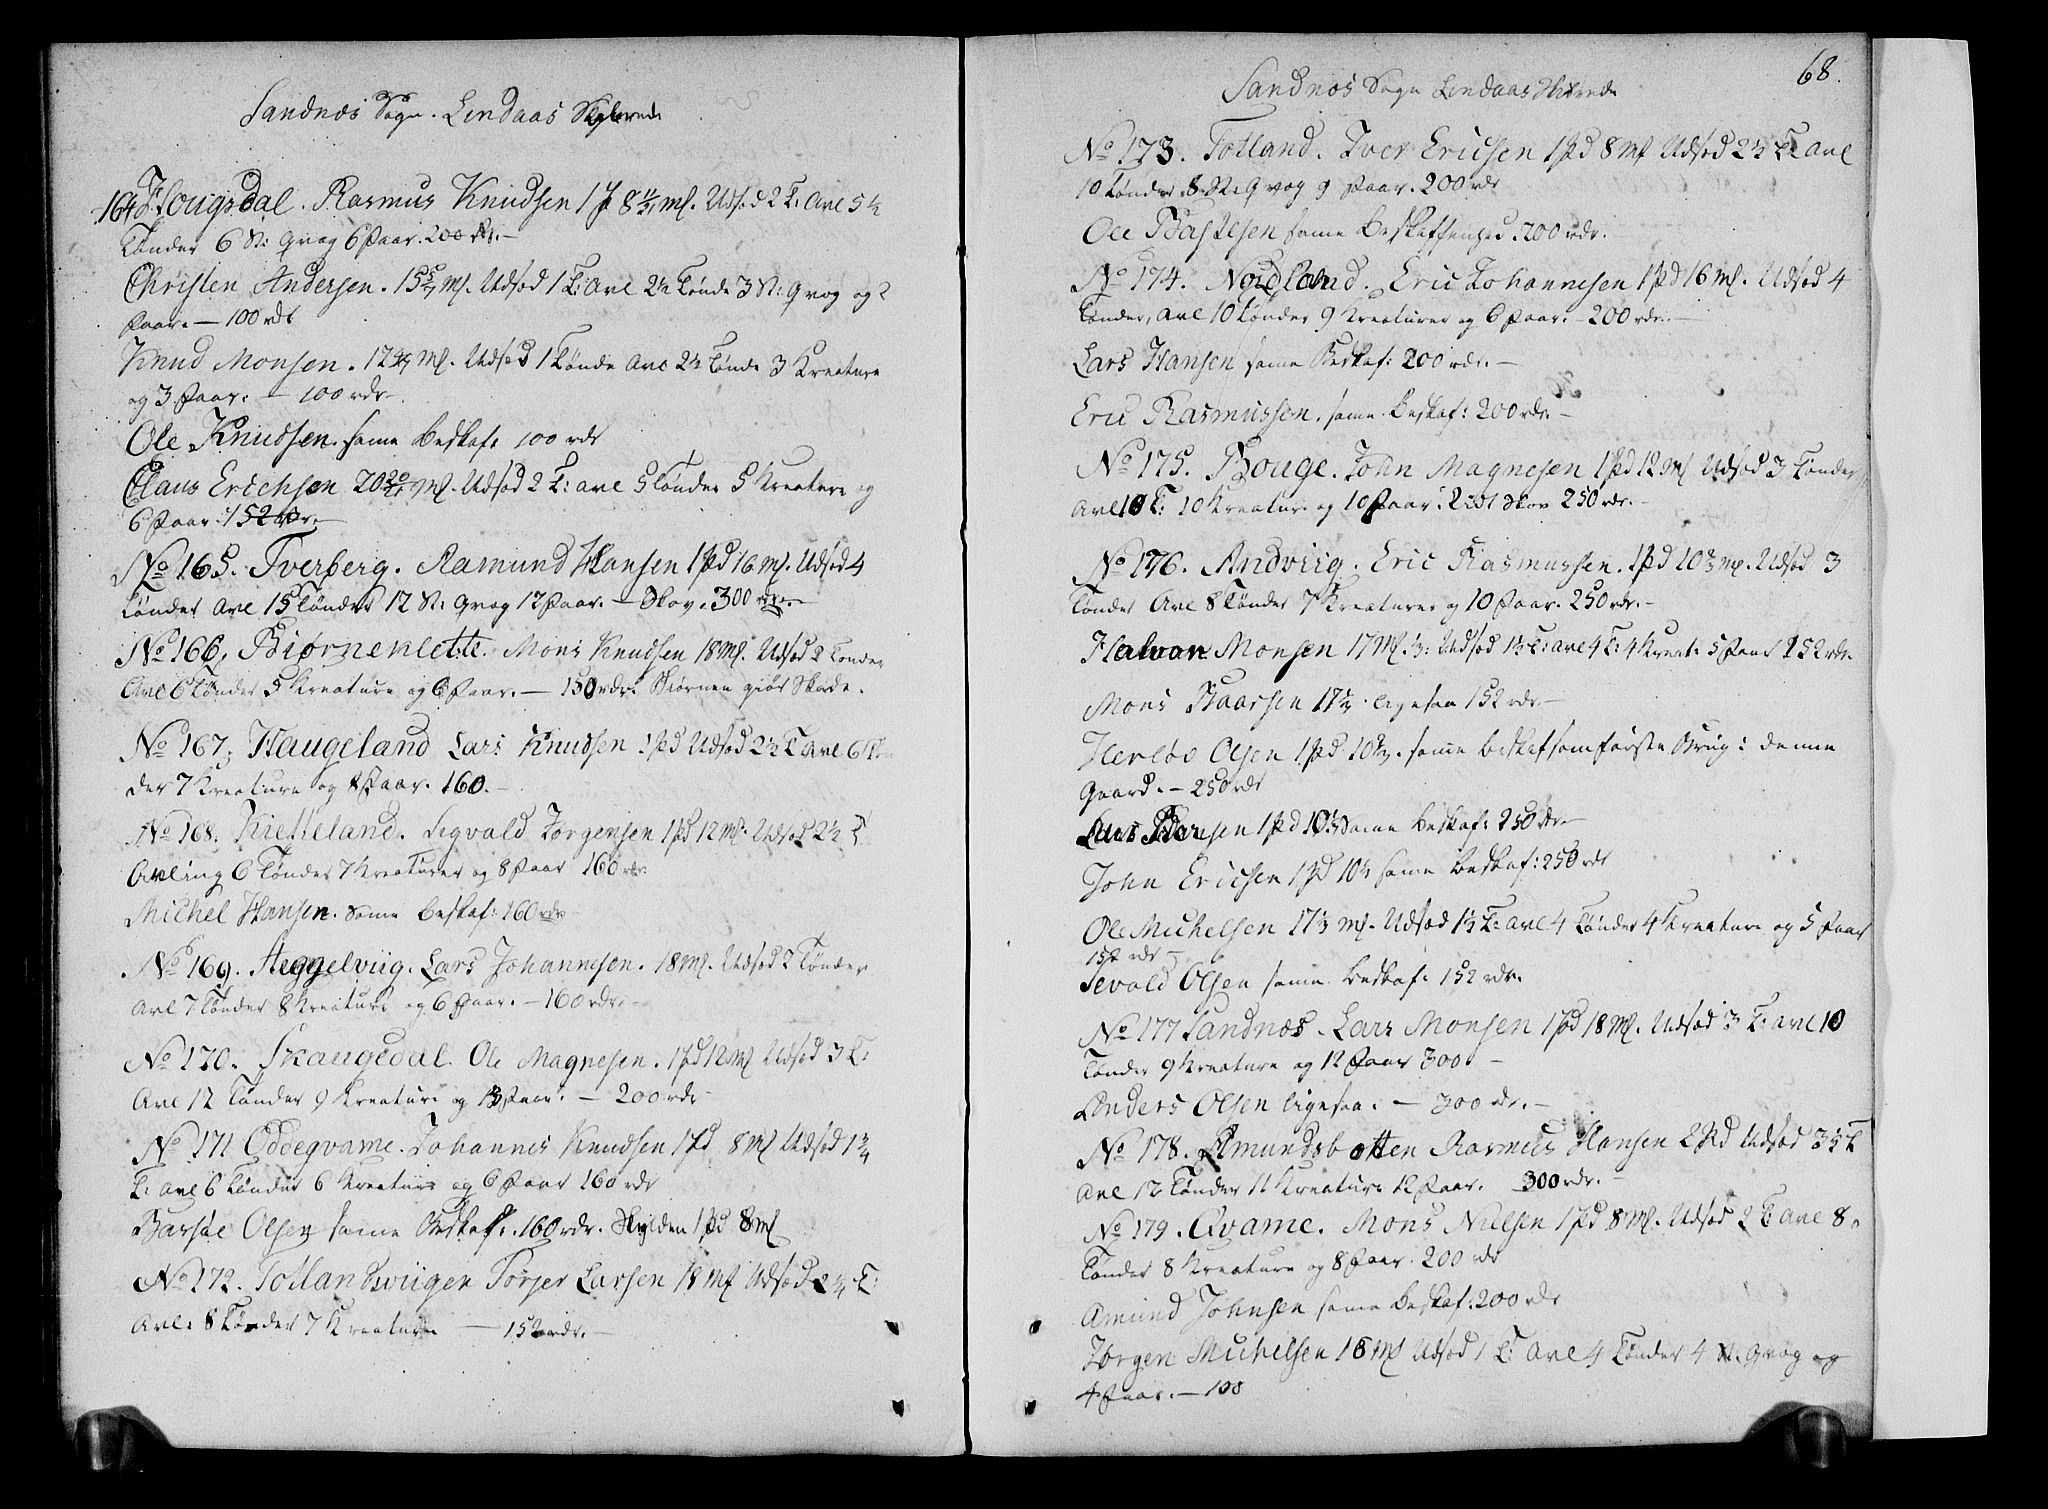 Sandnæs Sogn. Lindaas Skibrede
164 Hougsdal. Rasmus Knudsen 1 p 8 ml. Udsæd 2 T: Avl 5½
Tønder 6 St: Qvæg 6 Faar. 200 rdr.
Christen Andersen. 15 ml. Udsæd 1 T: avl 2½ Tønde 3 St: Qvæg og 2
Faar. — 100 rdr
Knud Monsen. 12 ml. Udsæd 1 Tønde Avl 2½ Tønde 3 Kreature
og 3 Faar. — 100 rdr.
Ole Knudsen. same Beskaf: 100 rdr
Claus Erichsen 20 ml. Udsæd 2 T: avl 5 Tønder 5 Kreature og
6 Faar. 152 rdr.
No 165. Tverberg. Ramund Hansen 1 pd 16 ml. Udsæd 4
Tønder Avl 15 Tønder 12 St: Qvæg 12 Faar. — Skov. 300 rdr.
No 166, Biørneklette. Mons Knudsen 18 ml. Udsæd 2 Tønder
Avl 6 Tønder 5 Kreature og 6 Faar. — 150 rdr. Biørnen giør Skade.
No 167; Haugeland Lars Knudsen 1 pd Udsæd 2½ T Avl 6 Tøn
der 7 Kreature og 8 Faar. 160.
No 168. Kielleland. Segvald Jørgensen 1 pd 12 ml. Udsæd 2½ T
Avling 6 Tønder 7 Kreaturer og 8 Faar 160 rdr.
Michel Hansen. same Beskaf: 160 rdr
No 169. Heggelviig. Lars Johannesen. 18 ml. Udsæd 2 Tønder
Avl 7 Tønder 8 Kreature og 6 Faar. — 160 rdr.
No 170. Skaugedal. Ole Magnesen. 1 pd 12 ml Udsæd 3 T:
Avl 12 Tønder 9 Kreature og 13 Faar. — 200 rdr
No 171 Oddeqvame. Johannes Knudsen 1 pd 8 ml Udsæd 1¾
T: avl 6 Tønder 6 Kreature og 6 Faar 160 rdr
Barsæe Olsen same Beskaf: 160 rdr. Skylden 1 pd 8 ml
No 172. Totlandsviigen Torger Larsen 18 ml Udsæd 2¼ T:
Avl: 8 Tønder 7 Kreature — 152 rdr. —
68.
Sandnæs Sogn Lindaas Skibrede
No 173. Totland. Iver Ericsen 1 pd 8 ml Udsæd 2½ T: avl
10 Tønder 8 St: Qvæg 9 Faar. 200 rdr
Ole Bastesen same Beskaffenhed. 200 rdr.
No 174. Nordland. Eric Johannesen 1 pd 16 ml. Udsæd 4
Tønder, avl 10 Tønder 9 Kreaturer og 6 Faar. — 200 rdr.
Lars Hansen same Beskaf: 200 rdr. —
Eric Rasmussen. same Beskaf: 200 rdr. —
No 175. Bouge. John Magnesen 1 pd 12 ml Udsæd 3 Tønder
Avl 10 T: 10 Kreature og 10 Faar. Skov 250 rdr. —
No 176. Andviig. Eric Rasmussen. 1 pd 10 ml. Udsæd 3
Tønder Avl 8 Tønder 7 Kreaturer og 10 Faar. 250 rdr. —
Halvor Monsen 17 ml. Udsæd 1½ T: avl 4 T: 4 Kreat: 5 Faar 152 rdr.
Mons Haarsen 17½. ligesaa 152 rdr. —
Herløv Olsen 1 pd 10. same Beskaf som første Brug i denne
Gaard. — 250 rdr
Lars Larsen 1 pd 10 same Beskaf: 250 rdr. —
John Ericsen 1 pd 10 same Beskaf: 250 rdr
Ole Michelsen 17 ml. Udsæd 1½ T: avl 4 Tønder 4 Kreature og 5 Faar
152 rdr
Sevald Olsen same Beskaf: 152 rdr.
No 177 Sandnæs. Lars Monsen 1 pd 18 ml. Udsæd 3 T: avl 10
Tønder 9 Kreature og 12 Faar 300. —
Anders Olsen ligesaa. — 300 rdr. —
No 178. Amundsbotten Rasmus Hansen 2 pd Udsæd 3½ T
Avl 12 Tønder 11 Kreature 12 Faar. 300 rdr. —
No 179. Qvame. Mons Nielsen 1 pd 8 ml. Udsæd 2 T: avl 8
Tønder 8 Kreature og 8 Faar. 200 rdr
Amund Johnsen same Beskaf: 200 rdr
Jørgen Michelsen 16 ml Udsæd 1 T: avl 4 Tønder 4 St: Qvæg og
4 Faar. — 100